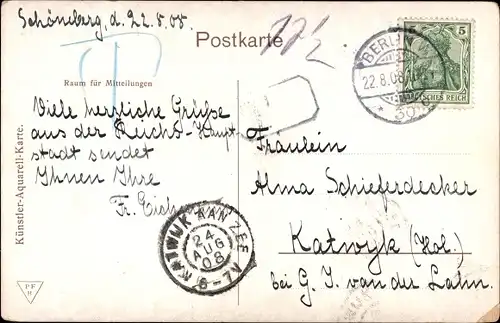 Schöneberg, d. 22.8.08.
Postkarte
Raum für Mitteilungen
Viele herzliche Grüße
aus der Reichs-Haupt-
stadt sendet
Ihnen Ihre
Fr.
Fräulein
Alma Schieferdecker
Katwyk (Hol.)
bei G. J. van der Lahn.
Künstler-Aquarell-Karte.
P F
B
BERLIN W.
22.8.08
30
5
5
DEUTSCHES REICH
KATWIJK AAN ZEE
24
AUG
08